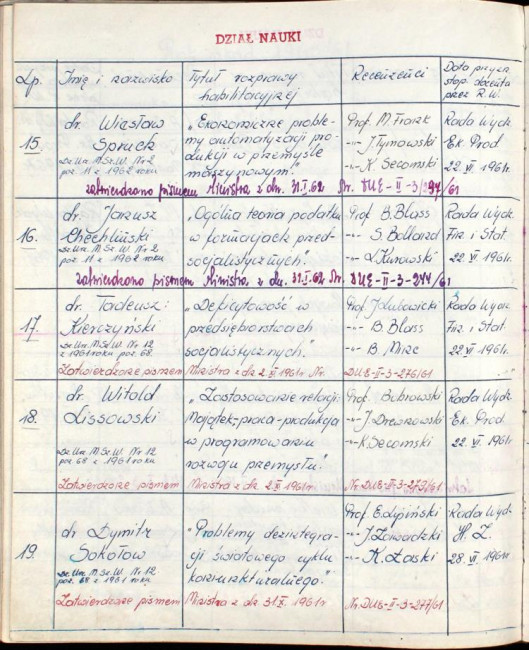 DZIAŁ NAUKI
Lp. Imię i nazwisko Tytuł rozprawy habilitacyjnej Recenzenci Data przyzn. stop. docenta przez R.W.
15. dr. Wiesław „Ekonomiczne proble- Prof. M. Frank Rada Wydz.
Spruch my automatyzacji pro- -"- J. Tymowski Ek. Prod.
Dz.Urz. M.Sz.W. Nr 2 dukcji w przemyśle -"- K. Secomski 22.VI.1961r.
poz. 11 z 1962 roku maszynowym".
zatwierdzono pismem Ministra z dn. 31.I.62 Nr. DUE-II-3/397/61
16. dr. Janusz „Ogólna teoria podatku Prof. B. Blass Rada Wydz.
Chechliński w formacjach przed- -"- S. Bolland Fin. i Stat.
Dz.Urz. M.Sz.W. Nr 2 socjalistycznych". -"- L. Kurowski 22.VI.1961r.
poz. 11 z 1962 roku
zatwierdzono pismem Ministra z dn. 31.I.62 Nr. DUE-II-3-244/61
17. dr. Tadeusz „Deficytowość w Prof. J. Lubowicki Rada Wydz.
Kierczyński przedsiębiorstwach -"- B. Blass Fin. i Stat.
Dz.Urz. M.Sz.W. Nr 12 socjalistycznych." -"- B. Minc 22.VI.1961r.
z 1961 roku poz. 68.
Zatwierdzone pismem Ministra z dn. 2.X.1961r. Nr. DUE-II-3-276/61
18. dr. Witold „Zastosowanie relacji: Prof. Bobrowski Rada Wydz.
Lissowski Majątek-praca-produkcja -"- J. Drewnowski Ek. Prod.
w programowaniu -"- K. Secomski 22.VI.1961r.
Dz.Urz. M.Sz.W. Nr 12 rozwoju przemysłu"
poz. 68 z 1961 roku
Zatwierdzone pismem Ministra z dn. 2.X.1961r Nr. DUE-II-3-273/61
19. dr Dymitr „Problemy dezintegra- Prof. E. Lipiński Rada Wydz.
Sokołow cji światowego cyklu -"- J. Zawadzki H. Z.
Dz.Urz. M.Sz.W. Nr 12 koniunkturalnego." -"- K. Łaski 28.VI.1961r
poz. 68 z 1961 roku
Zatwierdzone pismem Ministra z dn. 31.X.1961r Nr. DUE-II-3-277/61